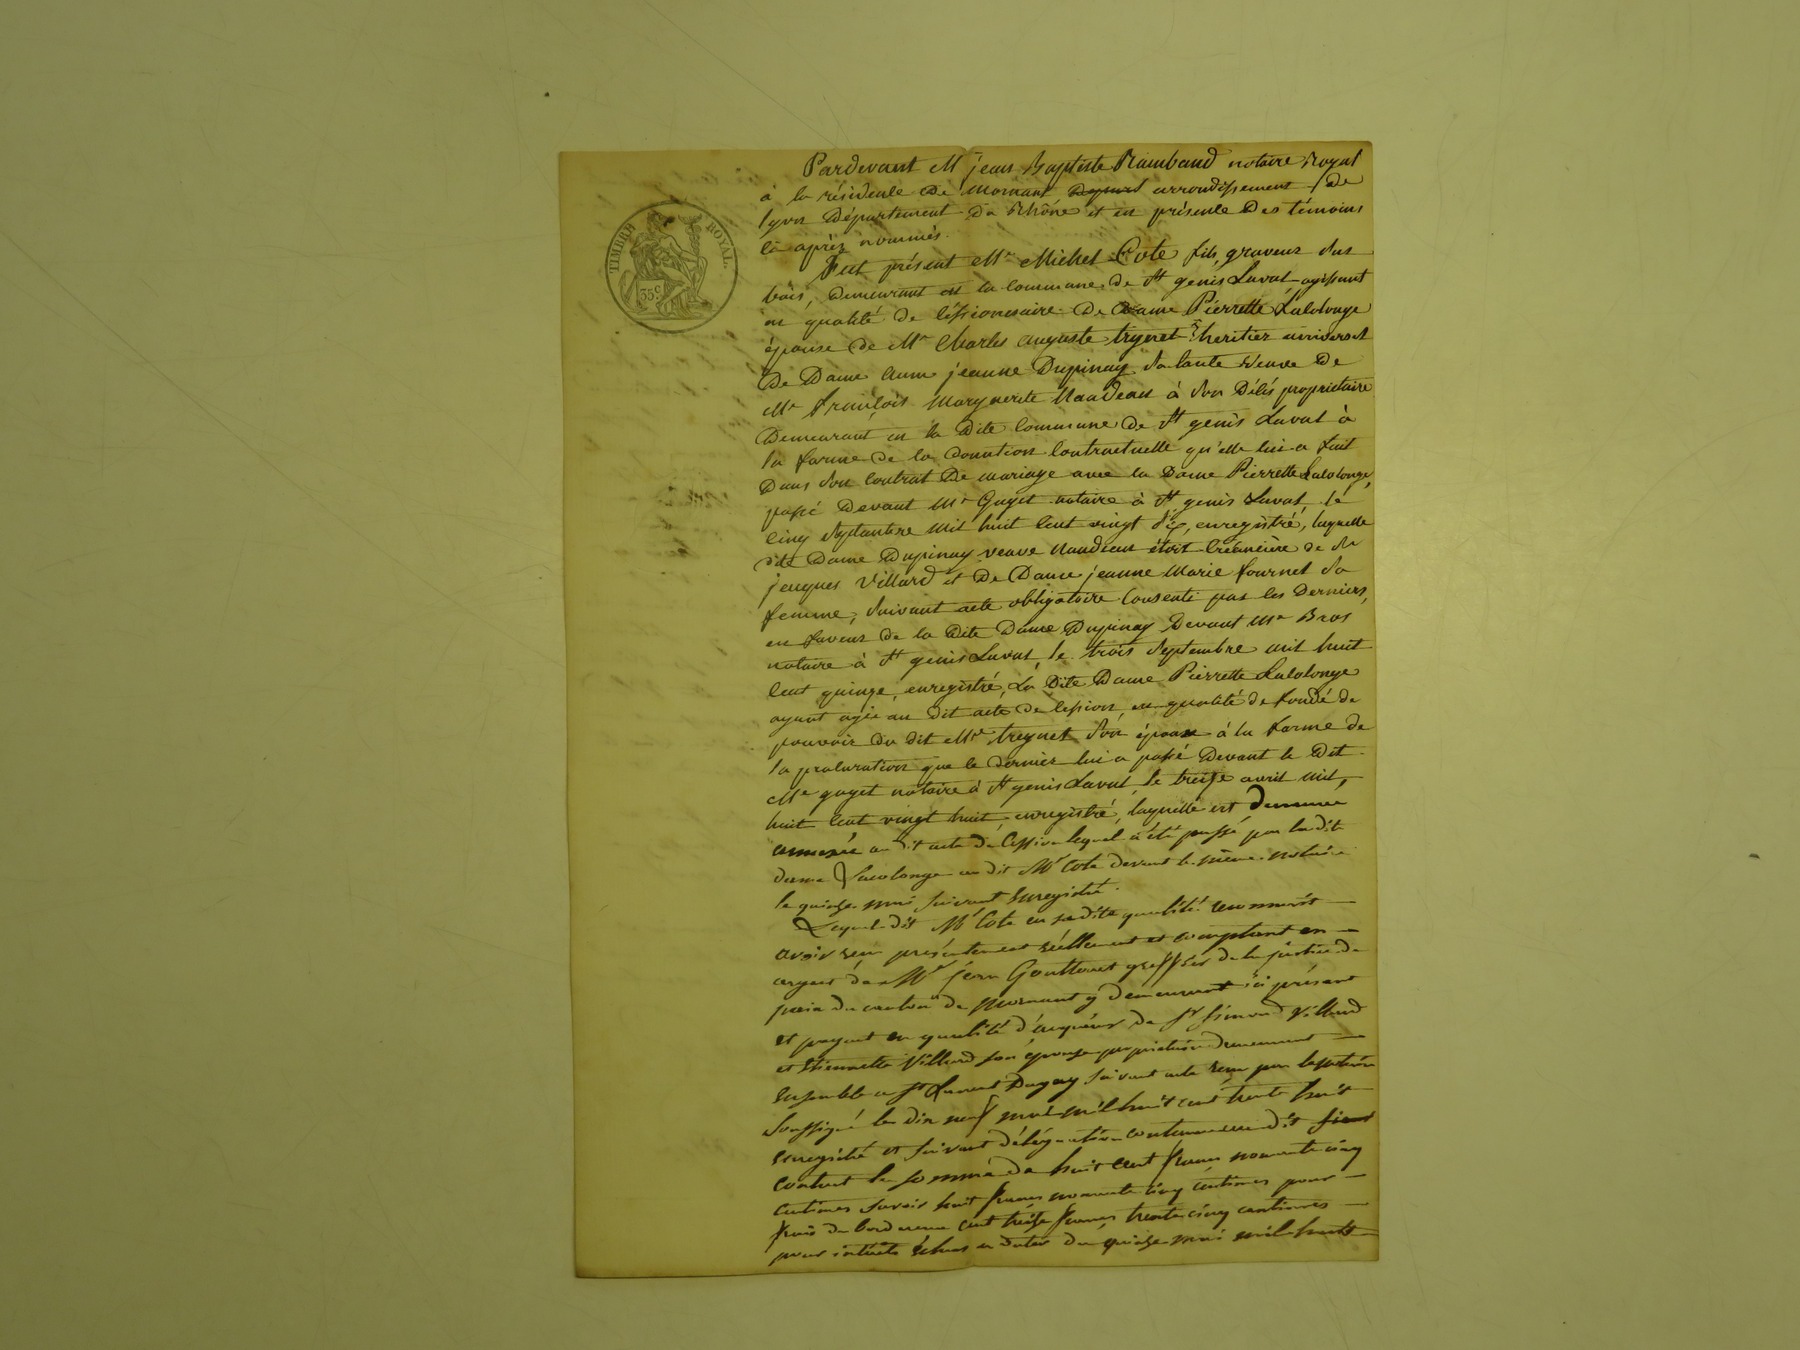 TIMBRE ROYAL.
35 c
Pardevant Me jean Baptiste Raimbaud notaire Royal
à la résidence de mornant arrondissement de
lyon Département du Rhône et en présence Des témoins
ci après nommés.
Fut présent Mr Michel Cote fils, graveur sur
bois, Demeurant en la commune de St genis Laval agissant
en qualité de cessionnaire De Dame Pierrette Lacolonge
épouse de Mr Charles auguste treynet heritier universel
De Dame anne jeanne Dupinay sa tante veuve De
Mr François Marguerite Naudeau à son Décès propriétaire
Demeurant en la Dite Commune De St genis Laval à
la forme De la Donation Contractuelle qu'elle lui a fait
Dans son Contrat De mariage avec la Dame Pierrette Lacolonge,
passé Devant Me Guyet notaire à St genis Laval, le
cinq septembre mil huit cent vingt six, enregistré, laquelle
dite Dame Dupinay veuve Naudeau étoit Créancière de sr
jacques Villard et De Dame jeanne Marie fournel sa
femme, suivant acte obligatoire Consenti par les Derniers,
en faveur de la Dite Dame Dupinay Devant Me Bros
notaire à St genis Laval, le trois septembre mil huit
cent quinze, enregistré, La Dite Dame Pierrette Lacolonge
ayant agie au dit acte de cession en qualité de fondé de
pouvoir du dit Mr treynet son époux à la forme de
la procuration que le dernier lui a passé Devant le Dit
Me guyet notaire à St genis Laval, le treize avril mil
huit cent vingt huit, enregistré, laquelle est demeurée
annexée au dit acte de Cession lequel a été passé par la dite
dame Lacolonge au dit Mr Cote devant le même notaire
le quinze mai suivant Enregistré.
Lequel dit Mr Cote en sa dite qualité reconnait
avoir reçu présentement réellement et comptant en
argent de Mr jean Gouttenet greffier de la justice de
paix du canton de Mornant y demeurant ici présent
et payant en qualité d'acquéreur de Sr Simond Villard
et Etiennette Villard son épouse propriétaires demeurant
Ensemble a St Laurent Dagny suivant acte reçu par le notaire
soussigné le dix neuf mars mil huit cent trente huit
Enregistré et suivant délégation contenue au dit
contrat la somme de huit cent francs nonante cinq
centimes savoir huit francs nonante cinq centimes pour
frais de bordereau cent treize francs trente cinq centimes
pour intérêts échus en dater du quinze mai mil huit